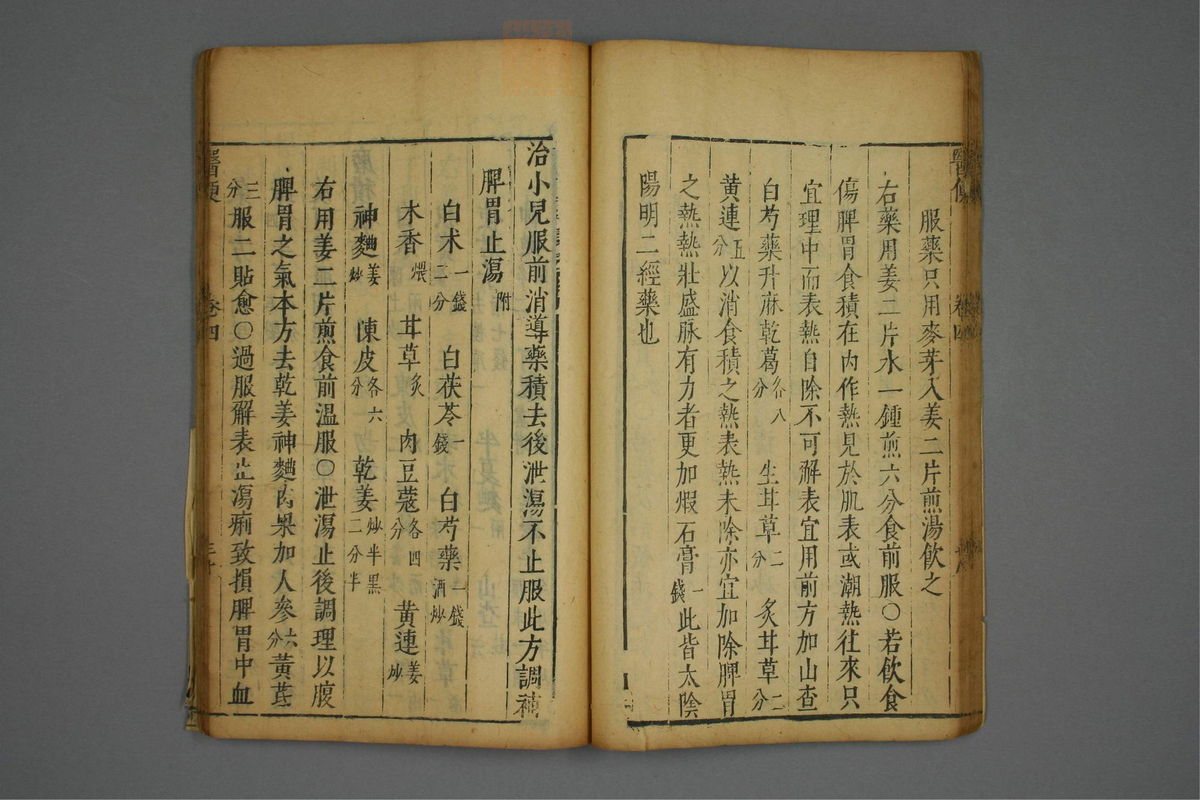 服藥只用麥芽入姜二片煎湯飲之
右藥用姜二片水一鍾煎六分食前服〇若飲食
傷脾胃食積在内作熱見於肌表或潮熱往來只
宜理中而表熱自除不可解表宜用前方加山查
白芍藥升麻乾葛各八分 生甘草二分 炙甘草二分
黄連五分以消食積之熱表熱未除亦宜加除脾胃
之熱熱壯盛脉有力者更加煆石膏一錢此皆太陰
陽明二經藥也
醫便 卷四
治小兒服前消導藥積去後泄瀉不止服此方調補
脾胃止瀉附
白术一錢二分 白茯苓一錢 白芍藥一錢酒炒
木香煨 甘草炙 肉豆蔻各四分 黄連姜炒
神麯姜炒 陳皮各六分 乾姜炒半黑二分半
右用姜二片煎食前温服〇泄瀉止後調理以復
脾胃之氣本方去乾姜神麯肉果加人參六分黄芪
三分服二貼愈〇過服解表止瀉痢致損脾胃中血
醫便 卷四 三十